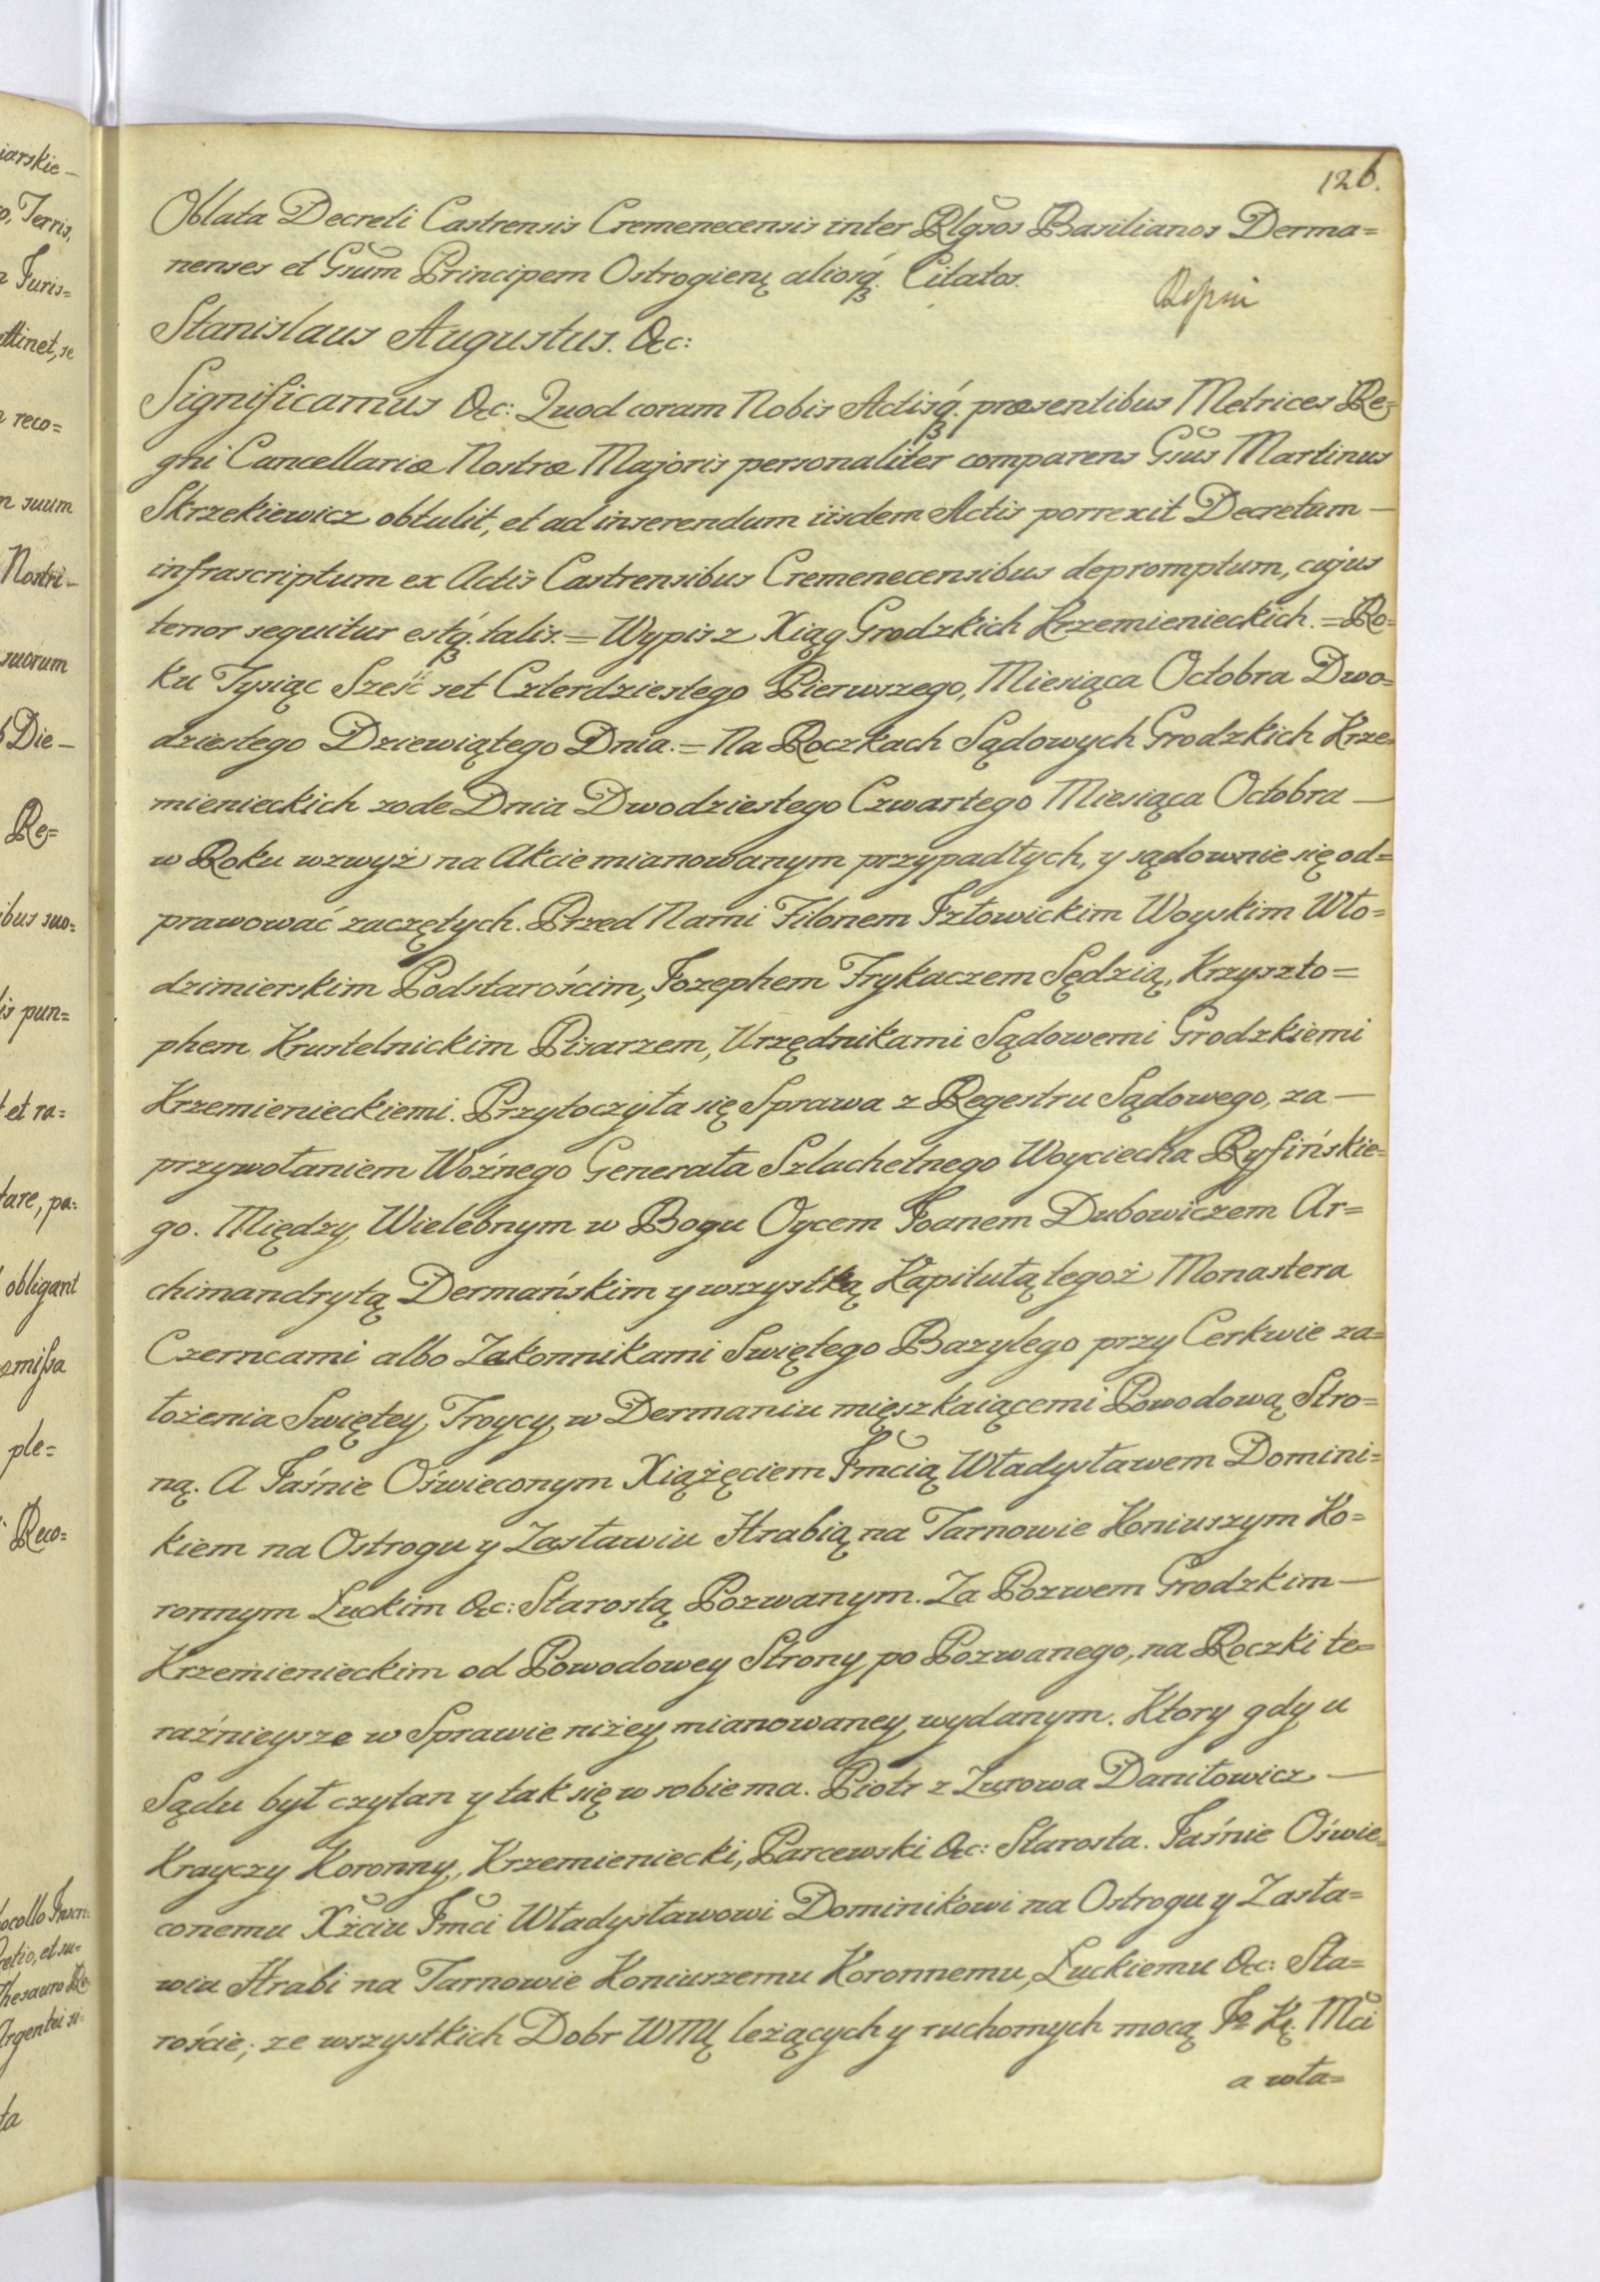 126.
Oblata Decreti Castrensis Cremenecensis inter Rlgsos Basilianos Derma=
nenses et Gsum Principem Ostrogien. aliosq. Citatos.
Stanislaus Augustus. &c:
Significamus &c: Quod coram Nobis Actisq. præsentibus Metrices Re=
gni Cancellariæ Nostræ Majoris personaliter comparens Gsus Martinus
Skrzekiewicz obtulit, et ad inserendum iisdem Actis porrexit Decretum —
infrascriptum ex Actis Castrensibus Cremenecensibus depromptum, cujus
tenor sequitur estq. talis. = Wypis z Xiąg Grodzkich Krzemienieckich. = Ro=
ku Tysiąc Sześć set Czterdziestego Pierwszego, Miesiąca Octobra Dwo=
dziestego Dziewiątego Dnia. = Na Roczkach Sądowych Grodzkich Krze=
mienieckich zode Dnia Dwodziestego Czwartego Miesiąca Octobra —
w Roku wzwyż na Akcie mianowanym przypadłych, y sądownie się od=
prawować zaczętych. Przed Nami Filonem Jełowickim Woyskim Wło=
dzimierskim Podstarościm, Jozephem Frykaczem Sędzią, Krzyszto=
phem Krustelnickim Pisarzem, Urzędnikami Sądowemi Grodzkiemi
Krzemienieckiemi. Przytoczyła się Sprawa z Regestru Sądowego, za —
przywołaniem Woźnego Generała Szlachetnego Woyciecha Ryfińskie=
go. Między Wielebnym w Bogu Oycem Joanem Dubowiczem Ar=
chimandrytą Dermańskim y wszystką Kapitułą tegoż Monastera
Czerncami albo Zakonnikami Swiętego Bazylego przy Cerkwie za=
łożenia Swiętey Troycy w Dermaniu mięszkaiącemi Powodową Stro=
ną. A Jaśnie Oświeconym Xiążęciem Jmcią Władysławem Domini=
kiem na Ostrogu y Zasławiu Hrabią na Tarnowie Koniuszym Ko=
ronnym Łuckim &c: Starostą Pozwanym. Za Pozwem Grodzkim —
Krzemienieckim od Powodowey Strony po Pozwanego, na Roczki te=
raźnieysze w Sprawie niżey mianowaney wydanym. Ktory gdy u
Sądu był czytan y tak się w sobie ma. Piotr z Zurowa Daniłowicz —
Krayczy Koronny, Krzemieniecki, Parcewski &c: Starosta. Jaśnie Oświe=
conemu Xżciu Jmci Władysławowi Dominikowi na Ostrogu y Zasła=
wiu Hrabi na Tarnowie Koniuszemu Koronnemu, Łuckiemu &c: Sta=
roście; ze wszystkich Dobr WMę leżących y ruchomych mocą Jo Kr. Mci
a wła=